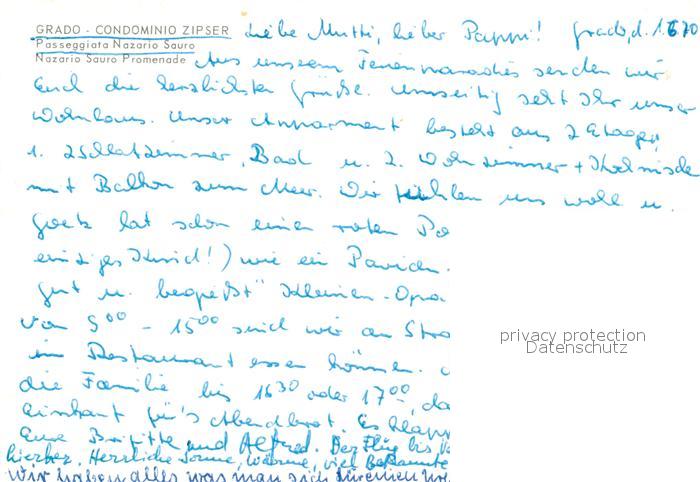 GRADO - CONDOMINIO ZIPSER
Passeggiata Nazario Sauro
Nazario Sauro Promenade
Liebe Mutti, lieber Pappi! Grado, d. 1.6.70
Aus unserem Ferienparadies senden wir
Euch die herzlichsten Grüße. Umseitig seht Ihr unser
Wohnhaus. Unser Appartment besteht aus 2 Etagen,
1. 2 Schlafzimmer, Bad u. 2. Wohnzimmer + Kochnische
mit Balkon zum Meer. Wir fühlen uns wohl u.
Goetz hat schon einen roten Po
einziges Kind!) wie ein Pavian.
gut u.
von 9⁰⁰ - 15⁰⁰ sind wir am Stra
im Restaurant essen können.
die Familie bis 16³⁰ oder 17⁰⁰, da
Einkauf für's Abendbrot. Es klapp
Eure Brigitte und Alfred. Der Flug bis
hierher. Herrliche Sonne, Wärme, viel Bekannte
Wir haben alles was man sich für einen
privacy protection
Datenschutz